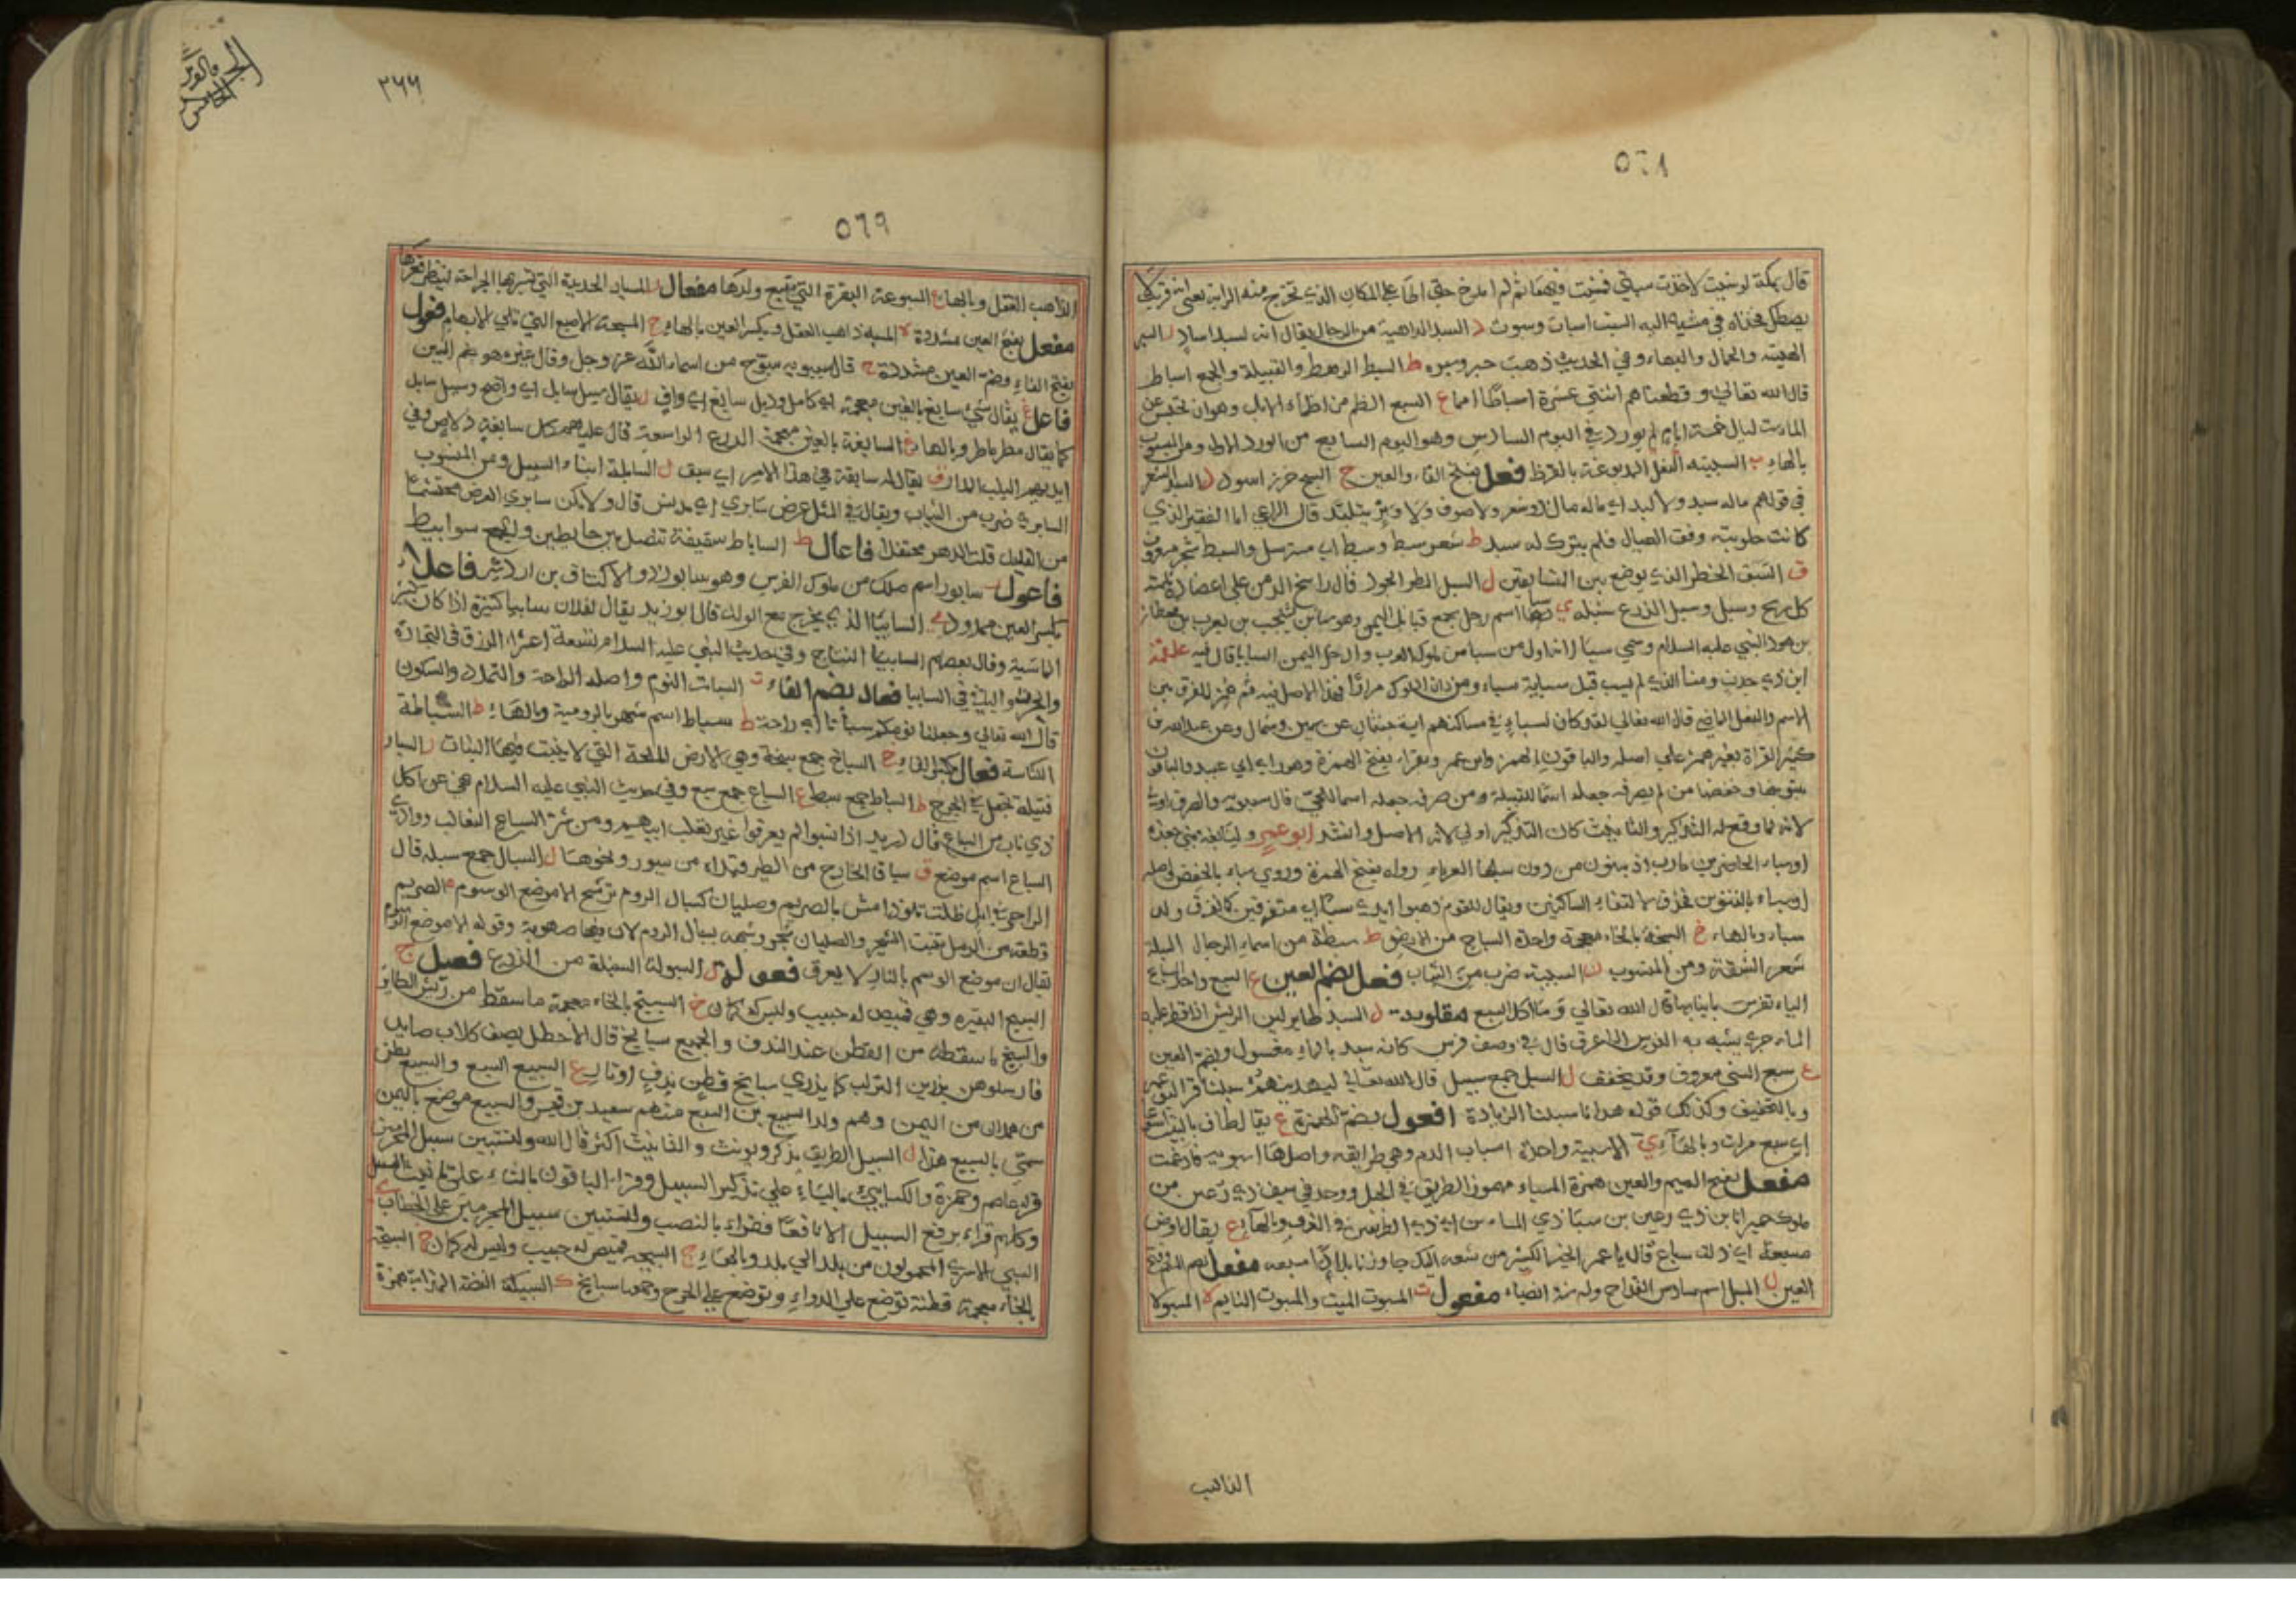 ٥٦٨
قال بمكة لو شيت لاخذت سبتي فمشيت فيهما ثم لم امذح حتى اطأ على المكان الذي تخرج منه الرابة يعني انه قريب لا
يصطك فخذاه في مشيه اليه السبت اسبات وسبوت د السبد الداهية من الرجال يقال انه لسبد اسباد ر السبر
الهيئة والجمال والبهاء وفي الحديث ذهب حبره وسبره ط السبط الرهط والقبيلة والجمع اسباط
قال الله تعالى وقطعناهم اثنتي عشرة اسباطا امما ع السبع الظم من اظماء الابل وهو ان تحبس عن
الماء ليال خمسة ايام ثم يورد في اليوم السادس وهو اليوم السابع من الورد الاول ومن المنسوب
بالهاء ت السبتيه النعل المدبوغة بالقرظ فعل بفتح الفاء والعين ج السبج خرز اسود د السبد الشعر
في قولهم ماله سبد ولا لبد اي ماله مال ذو شعر ولا صوف ولا وبر يتلبد قال الراعي اما الفقير الذي
كانت حلوبته وفق العيال فلم يترك له سبد ط شعر سبط وسبط اي مسترسل والسبط شجر معروف
ق السبق الخطر الذي يوضع بين المتسابقين ل السبل المطر الجود قال راسخ الدمن على اعضاده ثلمته
كل ريح وسبل وسبل الزرع سنبله ي سبا اسم رجل يجمع قبايل اليمن وهو سبا بن يشجب بن يعرب بن قحطان
بن هود النبي عليه السلام وسمي سبا لانه اول من سبا من ملوك العرب وادخل اليمن السبايا قال فيه علقمة
ابن ذي جدن ومنا الذي لم يسب قبل سباية سباء ومن دان الملوك مرارا فهذا الاصل فيه ثم همز للفرق بين
الاسم والفعل الماضي قال الله تعالى لقد كان لسباء في مساكنهم اية جنتان عن يمين وشمال وعن عبد الله بن
كثير القراة بغير همز على اصله والباقون بالهمز وابن عمر ويقراء بفتح الهمزة وهو راي ابي عبيد والباقون
بتنوينها وخفضها من لم يصرفه جعله اسما للقبيلة ومن صرفه جعله اسما للحي قال سيبويه والصرف اولى
لانه لما وقع له التذكير والتانيث كان التذكير اولى لانه الاصل وانشد ابو عمرو لنابغة بني جعده
او سباء الحاضرين مارب اذ يبنون من دون سيلها العرما رواه بفتح الهمزة وروي سباء بالخفض على اصله
او سباء بالتنوين فحذف لالتقاء الساكنين ويقال للقوم ذهبوا ايدي سبا اي متفرقين كما تفرق ولد
سباء وبالهاء خ السبخة بالخاء معجمة واحدة السباخ من الارض ط سبطة من اسماء الرجال السبلة
شعر الشفة ومن المنسوب ن السبنية ضرب من الثياب فعل بضم العين ع السبع واحد السباع
الياء تفرس بانيابها قال الله تعالى وما اكل السبع مقلوبه ل السبد طاير لين الريش اذا قطر عليه
الماء جرى يشبه به الفرس اذا عرق قال في وصف فرس كانه سبد بالماء مغسول وبضم العين
ع سبع الشي معروف وقد يخفف ل السبل جمع سبيل قال الله تعالى ليهدينهم سبلنا قرا ابو عمرو
وبالتخفيف وكذلك قوله هدانا سبلنا الزيادة افعول بضم الهمزة ع يقال طاف بالبيت اسبوعا
اي سبع مرات وبالهاء ي الاسبية واحدة اسباب الدم وهي طرايقه واصلها اسبويه فادغمت
مفعل بفتح الميم والعين همزة المسباء مهموز الطريق في الجبل ووجد في سيف ذي رعين من
ملوك حمير انا بن ذي رعين بن سبا ذي المساء من ايدي الطرفين في الذرو وبالهاء ع يقال ارض
مسبعة اي ذات سباع قال يا عمر الخير الكثير من سعه اليك جاوزنا بلادا مسبعه مفعل بضم الميم وفتح
العين ل المسبل اسم سادس القداح وله ستة انصباء مفعول ت المسبوت الميت والمسبوت النايم ه المسبوه
الذاهب
٥٦٩
٢٦٦
الذاهب العقل وبالهاء ع المسبوعة البقرة التي سبع ولدها مفعال ر المسبار الحديدة التي تسبر بها الجراحة لينظر قعرها
مفعل بفتح العين مشددة ه المسبه ذاهب العقل وبكسر العين بالهاء ح المسبحة الاصبع التي تلي الابهام فعول
بفتح الفاء وضم العين مشددة ح قال سيبويه سبوح من اسماء الله عز وجل وقال غيره هو بضم السين
فاعل غ يقال شي سابغ بالغين معجمة اي كامل وذيل سابغ اي واف ل يقال سبيل سابل اي واضح وسبيل سابل
كما يقال مطر ماطر وبالهاء غ السابغة بالغين معجمة الدرع الواسعة قال عليهم كل سابغة دلاص وفي
ايديهم اليلب المدار ق يقال له سابقة في هذا الامر اي سبق ل السابلة ابناء السبيل ومن المنسوب
السابري ضرب من الثياب ويقال في المثل عرض سابري اي مدنس قال ولا يكن سابري العرض محتشما
من القليل قلت الدهر محتفلا فاعال ط الساباط سقيفة تتصل بين حايطين والجمع سوابيط
فاعول ر سابور اسم ملك من ملوك الفرس وهو سابور ذو الاكتاف بن اردشير فاعلاء
بكسر العين ممدود ي السابيا الذي يخرج مع الولد قال ابو زيد يقال لفلان سابيا كثيرة اذا كان كثير
الماشية وقال بعضهم السابيا النتاج وفي حديث النبي عليه السلام تسعة اعشراء الرزق في التجارة
والجزء الباقي في السابيا فعال بضم الفاء ت السبات النوم واصله الراحة والتمدد والسكون
قال الله تعالى وجعلنا نومكم سباتا اي راحة ط سباط اسم شهر بالرومية وبالهاء ط السباطة
الكناسة فعال بكسر الفاء خ السباخ جمع سبخة وهي الارض الملحة التي لا ينبت فيها النبات ر السبار
فتيلة تجعل في الجرح ط السباط جمع سبط ع السباع جمع سبع وفي حديث النبي عليه السلام نهي عن اكل
ذي ناب من السباع قال دريد اذا نسبوا لم يعرفوا غير ثعلب ابيهم ومن شر السباع الثعالب ووادي
السباع اسم موضع ق سباقا الجارح من الطير قيداه من سيور ونحوها ل السبال جمع سبلة قال
الراعي في ابل ظلت تلوذ امش بالصريم وصليان كسبال الروم ترشح الا موضع الوسوم الصريم
قطعة من الرمل تنبت الشجر والصليان شجر وشبهه بسبال الروم لان فيها صهوبة وقوله الا موضع الوسوم
يقال ان موضع الوسم بالنار لا يعرق فعولة ل السبولة السنبلة من الزرع فعيل ج
السبيج البقيرة وهي قميص له جيب وليس له كمان خ السبيخ بالخاء معجمة ما سقط من ريش الطاير
والسبيخ ما سقط من القطن عند الندف والجميع سبايخ قال الاخطل يصف كلاب صايد
فارسلوهن يذرين التراب كما يذري سبايخ قطن ندف اوتار ع السبيع السبع والسبيع بطن
من همدان من اليمن وهم ولد السبيع بن السبع منهم سعيد بن قيس والسبيع موضع باليمن
سمي بالسبيع هذا ل السبيل الطريق يذكر ويونث والتانيث اكثر قال الله ولتستبين سبيل المجرمين
قرا عاصم وحمزة والكسايي بالياء على تذكير السبيل وقراء الباقون بالتاء على تانيث السبيل
وكلهم قراء برفع السبيل الا نافعا فقراء بالنصب ولتستبين سبيل المجرمين على الخطاب ي
السبي الاسرى المحمولون من بلد الى بلد وبالهاء ج السبيجة قميص له جيب وليس له كمان خ السبيخة
بالخاء معجمة قطنة توضع على الدواء وتوضع على الجرح وجمعها سبايخ ك السبيكة الفضة المذابة همزة